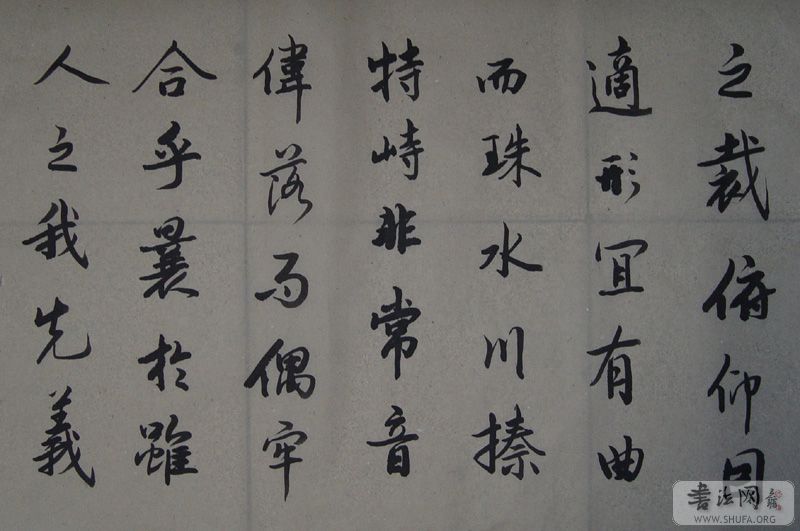 之裁俯仰因
適形冝有曲
而珠水川榛
特峙非常音
偉落而偶牢
合乎曩於雖
人之我先義
書法网
WWW.SHUFA.ORG